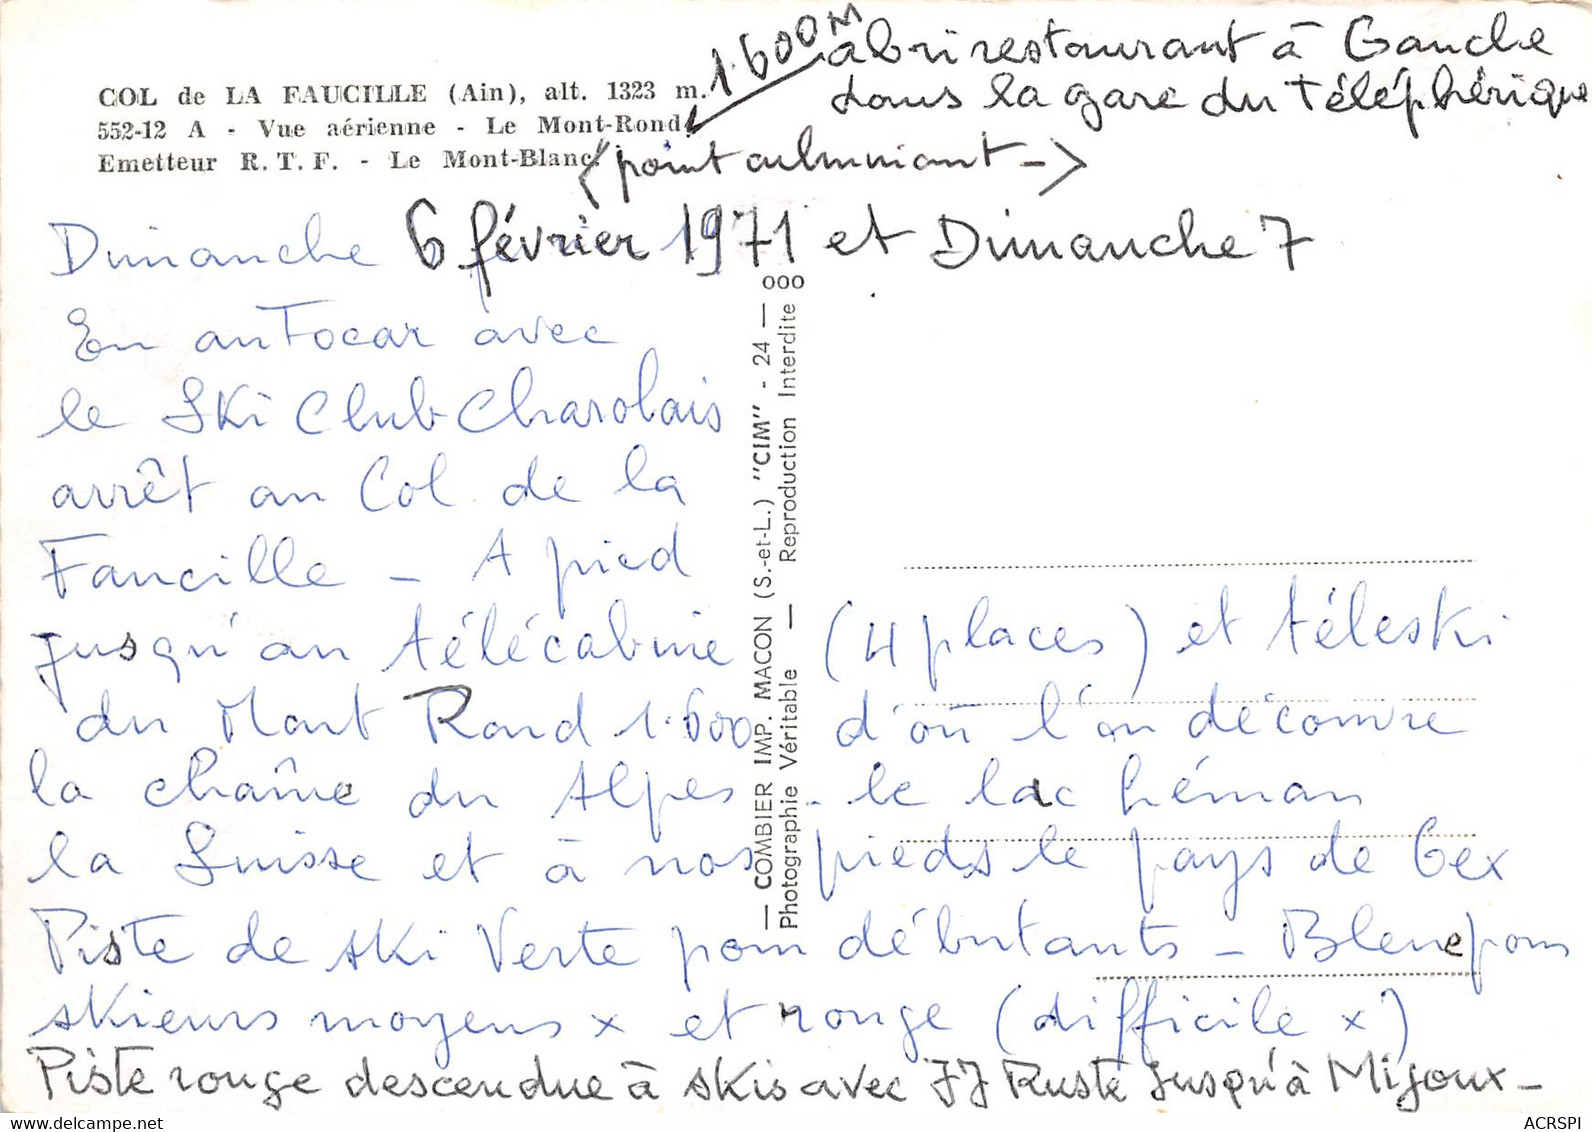 COL de LA FAUCILLE (Ain), alt. 1323 m.
552-12 A - Vue aérienne - Le Mont-Rond
Emetteur R. T. F. - Le Mont-Blanc
1.600 M
abri restaurant à Gauche
dans la gare du Téléphérique
(point culminant ->
Dimanche 6 février 1971 et Dimanche 7
En autocar avec
le Ski Club Charolais
arrêt au Col de la
Faucille - A pied
jusqu'au télécabine (4 places) et téleski
du Mont Rond 1.600 d'où l'on découvre
la chaîne du Alpes - le lac Léman
la Suisse et à nos pieds le pays de Gex
Piste de ski Verte pour débutants - Bleue pour
skieurs moyens x et rouge (difficile x)
Piste rouge descendue à skis avec JJ Ruste jusqu'à Mijoux -
— COMBIER IMP. MACON (S.-et-L.) "CIM" - 24 — 000
Photographie Véritable — Reproduction Interdite
ACRSPI